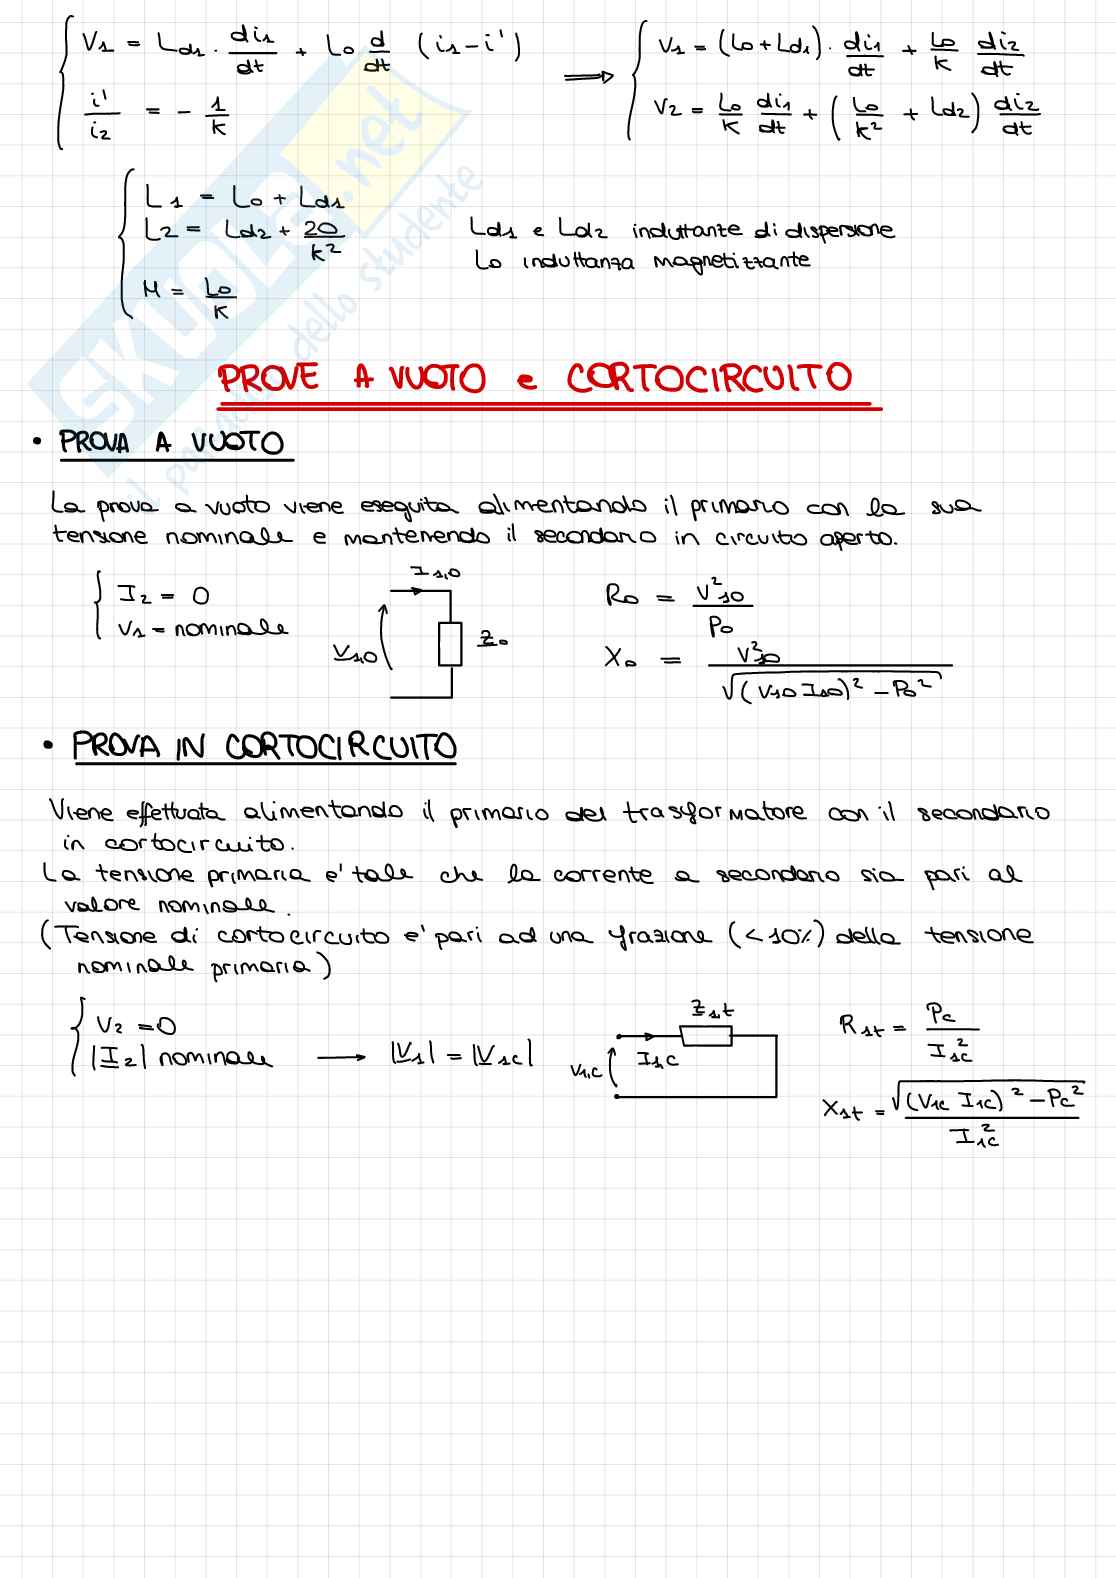 V1 = Ld1 · di1/dt + L0 d/dt (i1 - i') ⟹ V1 = (L0 + Ld1) · di1/dt + L0/k di2/dt
i'/i2 = - 1/k
V2 = L0/k di1/dt + (L0/k² + Ld2) di2/dt
L1 = L0 + Ld1
L2 = Ld2 + 20/k²
Ld1 e Ld2 induttanze di dispersione
L0 induttanza magnetizzante
M = L0/k
SKUOLA.net
il paradiso dello studente
PROVE A VUOTO e CORTOCIRCUITO
• PROVA A VUOTO
La prova a vuoto viene eseguita alimentando il primario con la sua
tensione nominale e mantenendo il secondario in circuito aperto.
I2 = 0
V1 = nominale
I1,0
V1,0
Z0
R0 = V²10 / P0
X0 = V²10 / √((V10 I10)² - P0²)
• PROVA IN CORTOCIRCUITO
Viene effettuata alimentando il primario del trasformatore con il secondario
in cortocircuito.
La tensione primaria e' tale che la corrente a secondario sia pari al
valore nominale.
(Tensione di cortocircuito e' pari ad una frazione (<10%) della tensione
nominale primaria)
V2 = 0
|I2| nominale → |V1| = |V1c|
Z1t
V1,c
I1,c
R1t = Pc / I1c²
X1t = √((V1c I1c)² - Pc²) / I1c²